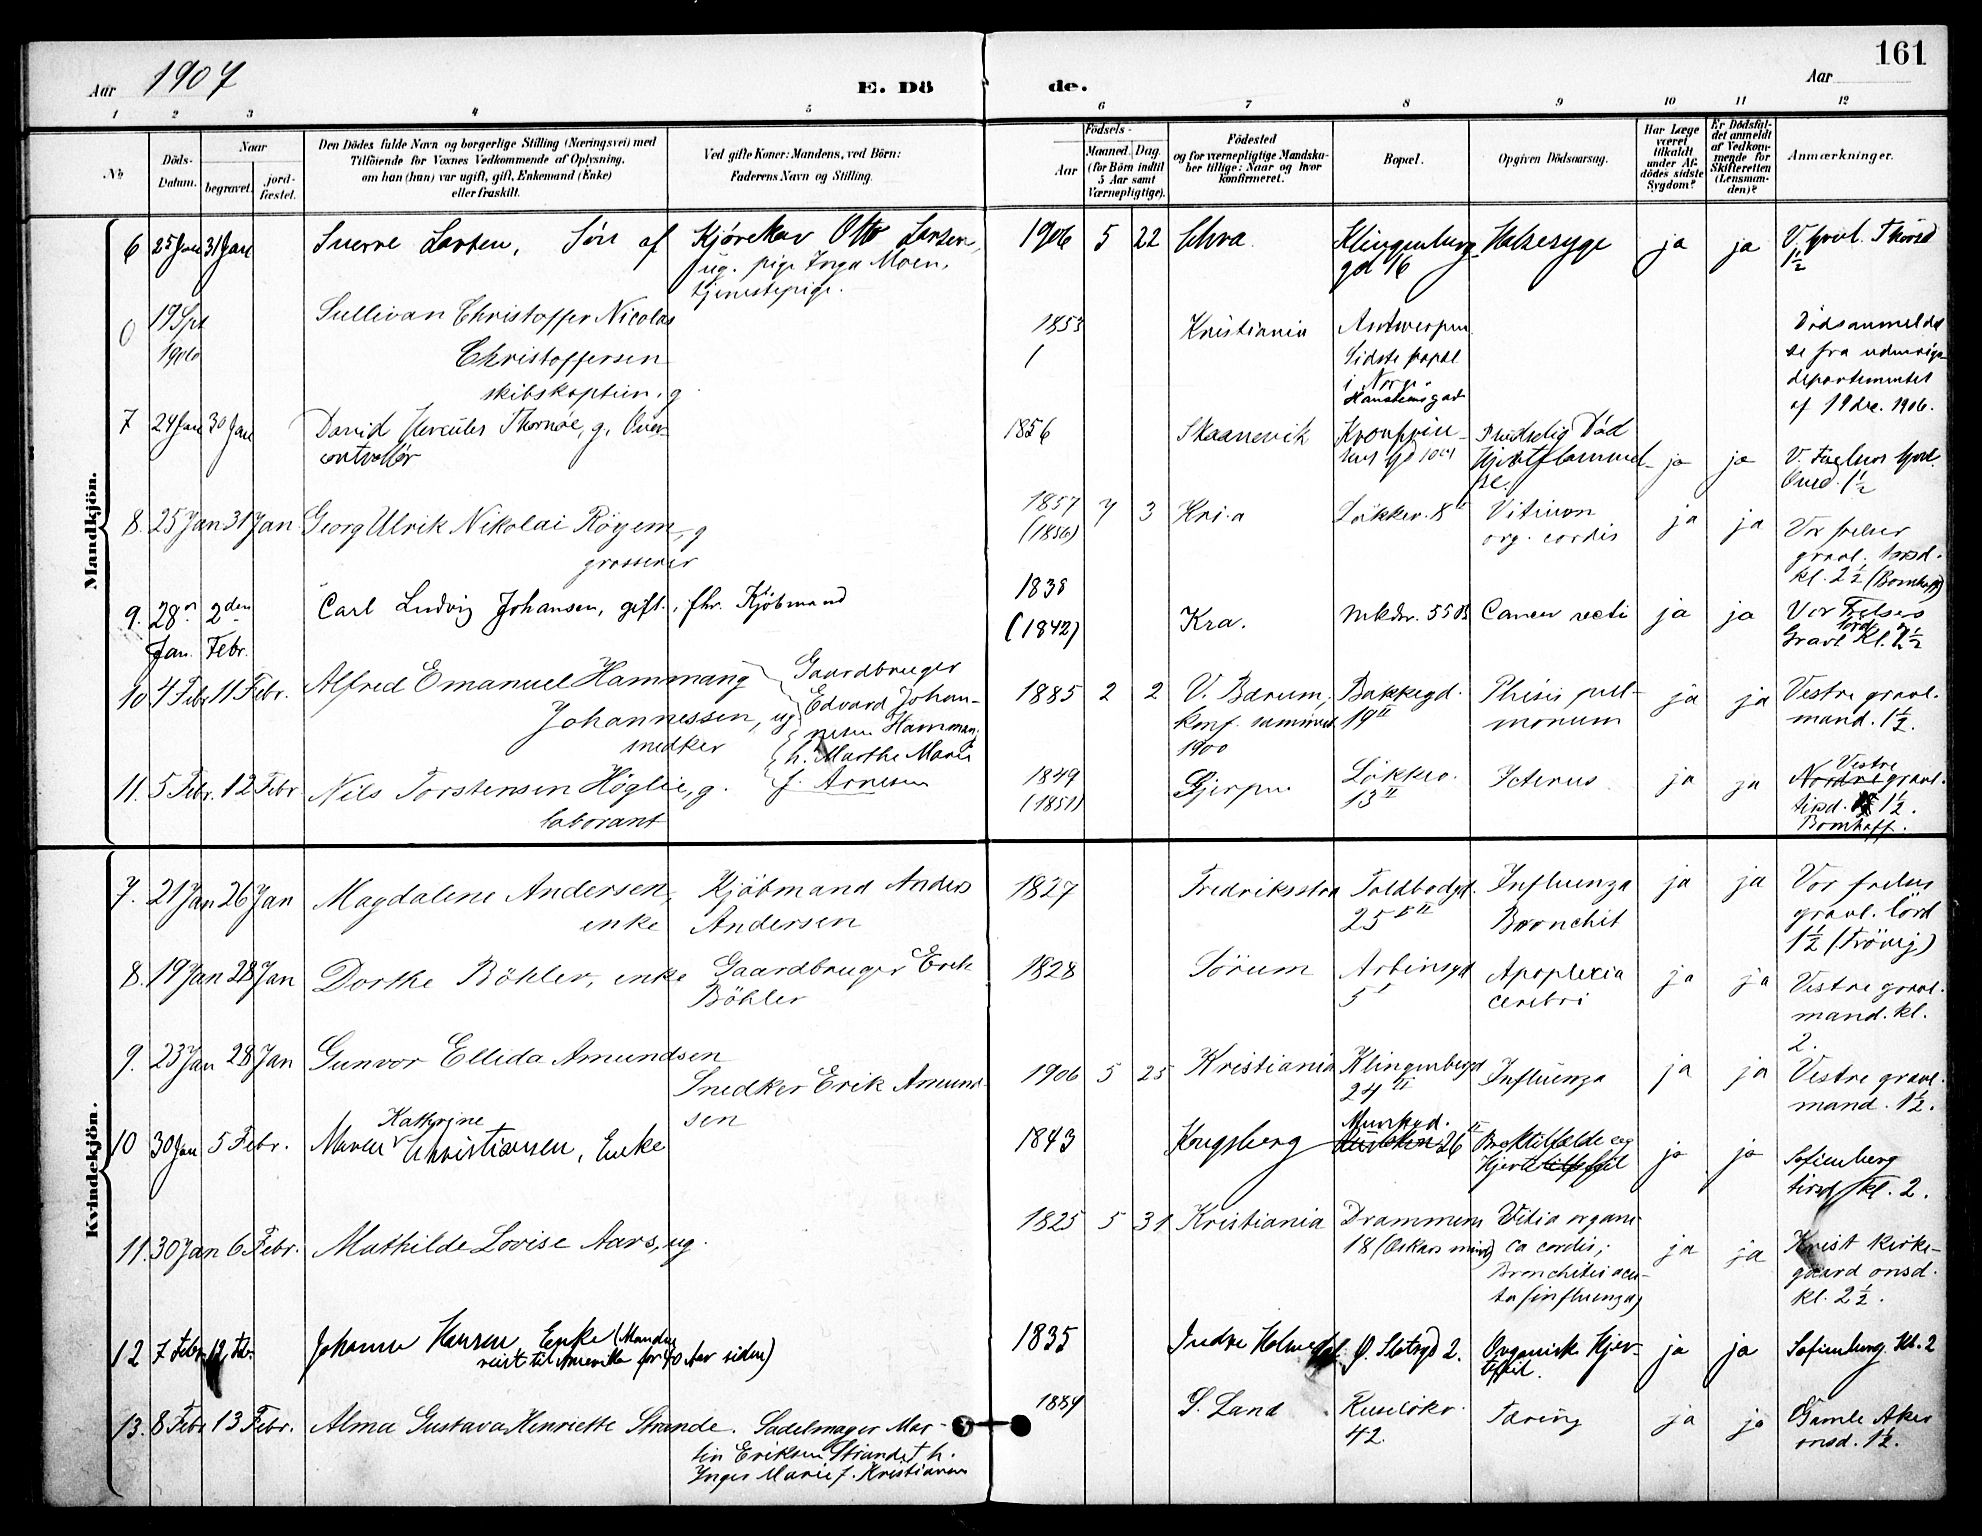 161
Aar 1907 E. Dö de. Aar
1 2 3 4 5 6 7 8 9 10 11 12
No
Döds-Datum.
Naar
begravet.
jord-fæstet.
Den Dödes fulde Navn og borgerlige Stilling (Næringsvei) med
Tilföiende for Voxnes Vedkommende af Oplysning,
om han (hun) var ugift, gift, Enkemand (Enke)
eller fraskilt.
Ved gifte Koner: Mandens, ved Börn:
Faderens Navn og Stilling.
Födsels-
Aar
Maaned. Dag.
(for Börn indtil
5 Aar samt
Værnepligtige).
Födested
og for værnepligtige Mandska-
ber tillige: Naar og hvor
konfirmeret.
Bopæl.
Opgiven Dödsaarsag.
Har Læge
været
tilkaldt
under Af-
dödes sidste
Sygdom?
Er Dödsfal-
det anmeldt
af Vedkom-
mende for
Skifteretten
(Lensman-
den)?
Anmærkninger.
Mandkjön.
6 25 Jan 31 Jan Sverre Larsen, Sön af Kjörekar Otto Larsen, 1906 5 22 Chra. Klingenberg- Halsesyge ja ja V. Gravl. Thorsd
ug. pige Inga Moen, gd 16 1½
tjenestepige.
0 19 Spt Sullivan Christoffer Nicolas 1853 Kristiania Antwerpen Dödsanmeldel
Christoffersen Sidste bopæl se fra udenrigs
skibskaptein, g. i Norge departementet
af 19 dec. 1906.
7 24 Jan 30 Jan David Hercules Thornöe, g. Over- 1856 Skaanevik Kronprin- Pludselig Död
controllör ja ja V. Frelsers Gravl.
Onsd. 1½
8. 25 Jan 31 Jan Georg Ulrik Nikolai Röyem, g 1857 7 3 Kri.a Lökkev. 8 II Vitium ja ja Vor frelser
grosserer (1856) org. cordis gravl. torsd.
kl. 2½ (Bomhoff)
9. 28 2den Carl Ludvig Johansen, gift, fhv. Kjöbmand 1838 Kra. Cancer recti ja ja Vor Frelsers
Jan. Febr. (1842) Gravl Kl. 2½
10. 4 Febr 11 Febr. Alfred Emanuel Hammang Gaardbruger 1885 2 2 V. Bærum, Bakkegd. Phisis pul- ja ja Vestre gravl.
Johannessen, ug Edvard Johan- konf. sammest. 19 II monum mand. 1½.
snedker nesen Hammang 1900
h. Marthe Marie
f. Arnesen
11. 5 Febr. 12 Febr Nils Torstensen Höglie, g. 1849 Gjerpen Lökkev. Icterus ja ja Vestre
laborant (1851) 13 II Nordre gravl.
tirsd. 1½.
Bomhoff.
Kvindekjön.
7. 21 Jan 26 Jan Magdalene Andersen, Kjöbmand Anders 1827 Fredriksstad Toldbodgd. Influenza ja ja Vor frelsers
enke Andersen 25 Bronchit gravl. lörd
1½ (Trövig)
8. 19 Jan 28 Jan Dorthe Böhler, enke Gaardbruger Erik 1828 Sörum Arbinsgd Apoplexia ja ja Vestre gravl.
Böhler 5 I cerebri mand. kl.
2.
9. 23 Jan 28 Jan Gunvor Ellida Amundsen 1906 5 25 Kristiania Klingenbergd Influenza ja ja Vestre gravl.
Snedker Erik Amund- 24 II mand. 1½.
sen
10 30 Jan 5 Febr. Maren Kathrine Christiansen, Enke 1843 Kongsberg Munkgd. 26 ja ja Sofienberg
tirsd kl. 2.
11. 30 Jan 6 Febr. Mathilde Lovise Aars, ug. 1825 5 31 Kristiania Drammens Vitia organi- ja ja Krist kirke-
18 (Oskars minde) ca cordis; gaard onsd.
Bronchitis acu- kl. 2½.
ta (influenza)
12 7 Febr 12 Febr. Johanne Hansen Enke (Manden 1835 Indre Holmedal. Ø. Slotsgd 2. Organisk Hjer- ja ja Sofienberg Kl. 2
reist til Amerika for 40 Aar siden) tefeil.
13. 8 Febr 13 Febr. Alma Gustava Henriette Strande. Sadelmager Mar- 1884 S. Land Ruselökv. Tæring ja ja Gamle Aker
tin Eriksen Strande t h. 42. onsd. 1½.
Inger Marie f. Kristiansen